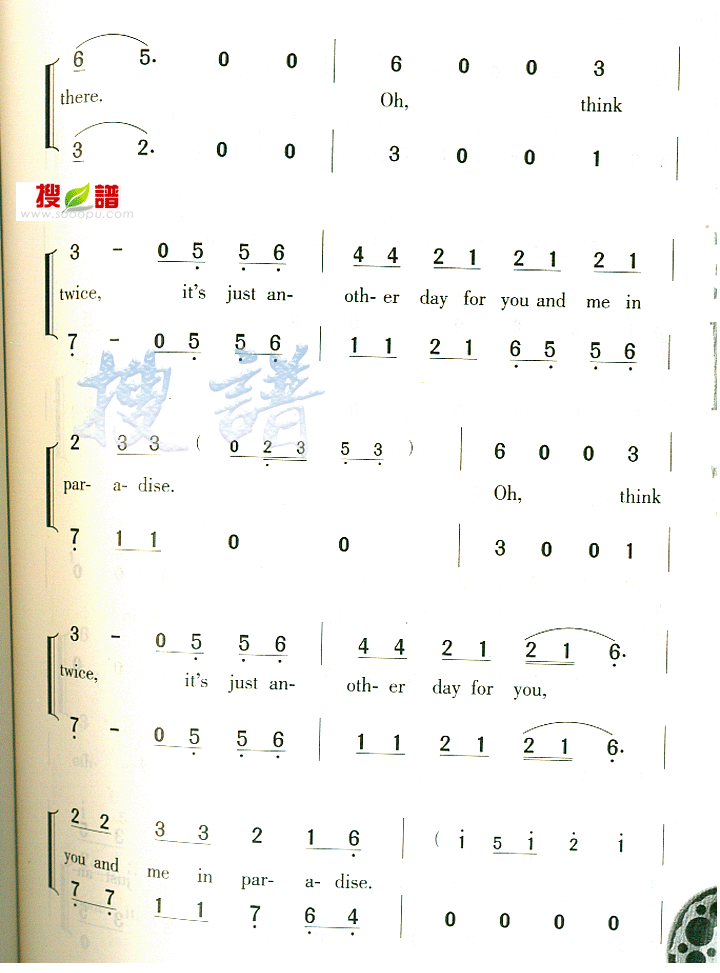 6 5. 0 0 | 6 0 0 3 |
there. Oh, think
3 2. 0 0 | 3 0 0 1 |
搜 譜
www.sooopu.com
3 - 0 5̣ 5̣ 6̣ | 4 4 2 1 2 1 2 1 |
twice, it's just an- oth- er day for you and me in
7̣ - 0 5̣ 5̣ 6̣ | 1 1 2 1 6̣ 5̣ 5̣ 6̣ |
搜 譜
2 3 3 ( 0 2̣ 3 5̣ 3̣ ) | 6 0 0 3 |
par- a- dise. Oh, think
7̣ 1 1 0 0 | 3 0 0 1 |
3 - 0 5̣ 5̣ 6̣ | 4 4 2 1 2 1 6̣. |
twice, it's just an- oth- er day for you,
7̣ - 0 5̣ 5̣ 6̣ | 1 1 2 1 2 1 6̣. |
2 2 3 3 2 1 6̣ | ( 1̇ 5 1̇ 2̇ 1̇ |
you and me in par- a- dise.
7̣ 7̣ 1 1 7̣ 6̣ 4̣ | 0 0 0 0 |